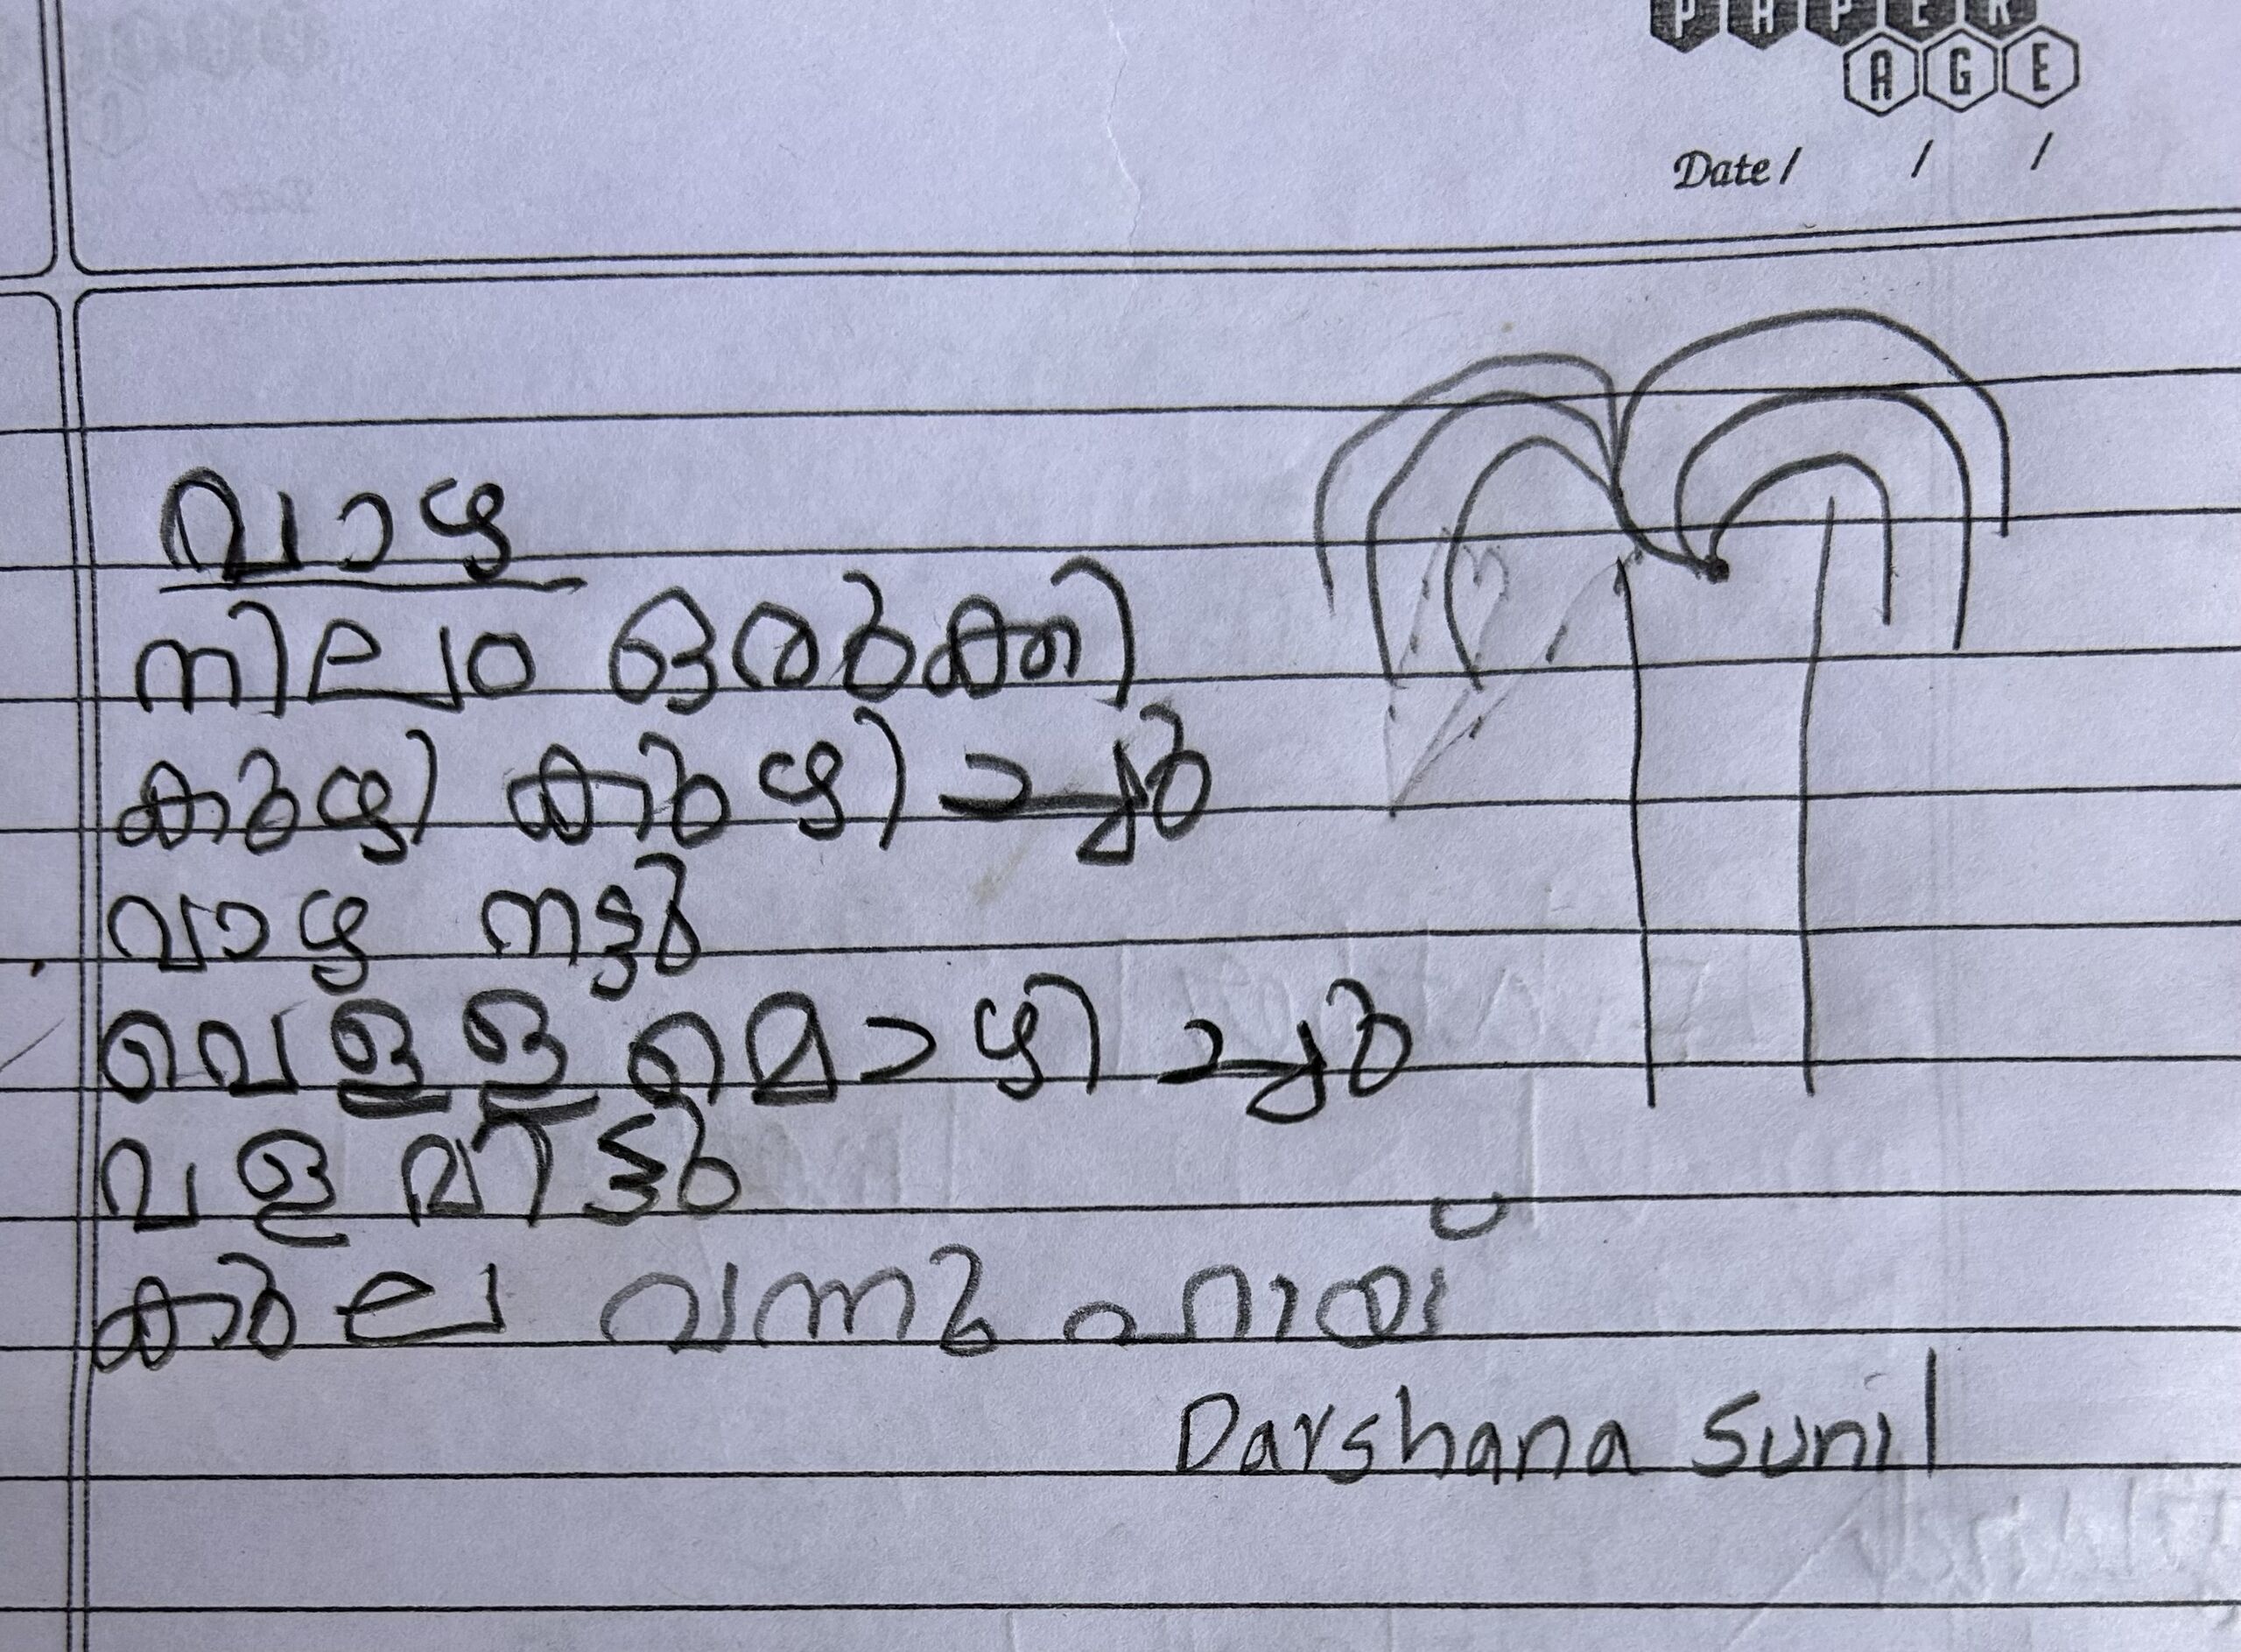 PAPER
AGE
Date / / /
വാഴ
നിലം ഒരുക്കി
കുഴി കുഴിച്ചു
വാഴ നട്ടു
വെള്ളമൊഴിച്ചു
വളമിട്ടു
കുല വന്നു ഹായ്
Darshana Sunil